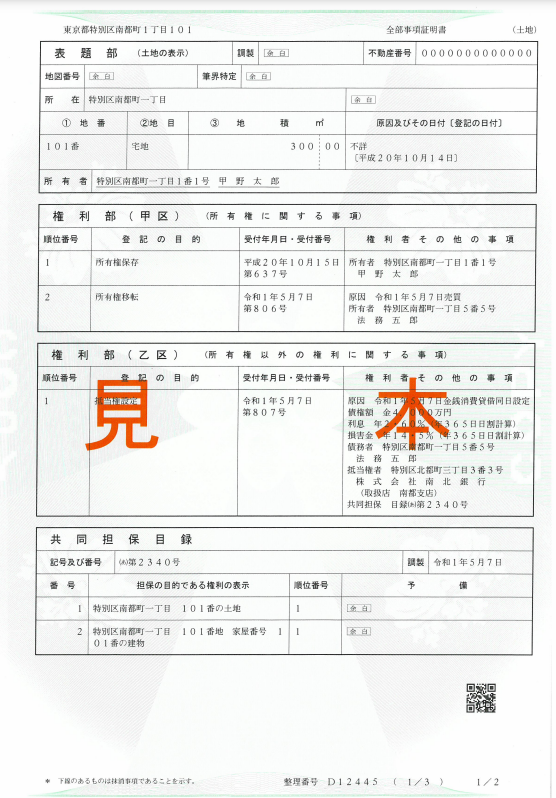 東京都特別区南都町１丁目１０１ 全部事項証明書 （土地）
表題部 （土地の表示） 調製 余白 不動産番号 ０００００００００００００
地図番号 余白 筆界特定 余白
所在 特別区南都町一丁目 余白
① 地番 ②地目 ③ 地積 ㎡ 原因及びその日付〔登記の日付〕
１０１番 宅地 ３００ ００ 不詳
〔平成２０年１０月１４日〕
所有者 特別区南都町一丁目１番１号 甲野太郎
権利部（甲区） （所有権に関する事項）
順位番号 登記の目的 受付年月日・受付番号 権利者その他の事項
１ 所有権保存 平成２０年１０月１５日 所有者 特別区南都町一丁目１番１号
第６３７号 甲野太郎
２ 所有権移転 令和１年５月７日 原因 令和１年５月７日売買
第８０６号 所有者 特別区南都町一丁目５番５号
法務五郎
権利部（乙区） （所有権以外の権利に関する事項）
順位番号 登記の目的 受付年月日・受付番号 権利者その他の事項
１ 抵当権設定 令和１年５月７日 原因 令和１年５月７日金銭消費貸借同日設定
第８０７号 債権額 金４，０００万円
利息 年２・６０％（年３６５日日割計算）
損害金 年１４・５％（年３６５日日割計算）
債務者 特別区南都町一丁目５番５号
法務五郎
抵当権者 特別区北都町三丁目３番３号
株式会社南北銀行
（取扱店 南都支店）
共同担保 目録㋐第２３４０号
見本
共同担保目録
記号及び番号 ㋐第２３４０号 調製 令和１年５月７日
番号 担保の目的である権利の表示 順位番号 予備
１ 特別区南都町一丁目 １０１番の土地 １ 余白
２ 特別区南都町一丁目 １０１番地 家屋番号 １ １ 余白
０１番の建物
＊ 下線のあるものは抹消事項であることを示す。 整理番号 Ｄ１２４４５ （１／３） １／２